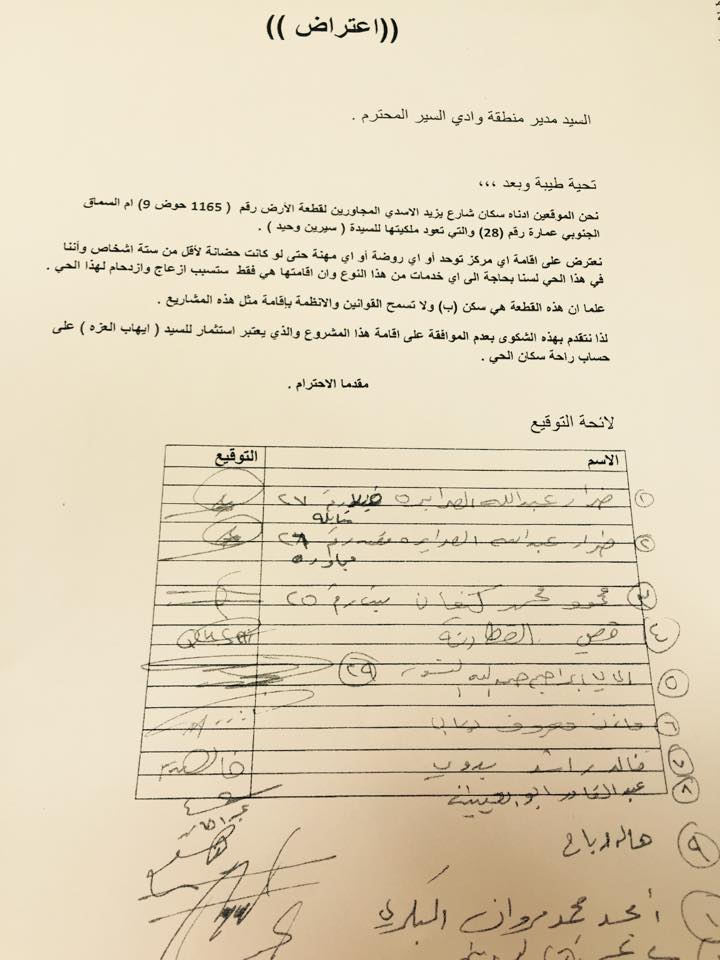 ((اعتراض ))
السيد مدير منطقة وادي السير المحترم .
تحية طيبة وبعد ،،،
نحن الموقعين ادناه سكان شارع يزيد الاسدي المجاورين لقطعة الأرض رقم ( 1165 حوض 9) ام السماق
الجنوبي عمارة رقم (28) والتي تعود ملكيتها للسيدة ( سيرين وحيد ) .
نعترض على اقامة اي مركز توحد أو اي روضة أو اي مهنة حتى لو كانت حضانة لأقل من ستة اشخاص وأننا
في هذا الحي لسنا بحاجة الى اي خدمات من هذا النوع وان اقامتها هي فقط ستسبب ازعاج وازدحام لهذا الحي .
علما ان هذه القطعة هي سكن (ب) ولا تسمح القوانين والانظمة بإقامة مثل هذه المشاريع .
لذا نتقدم بهذه الشكوى بعدم الموافقة على اقامة هذا المشروع والذي يعتبر استثمار للسيد ( ايهاب العزه ) على
حساب راحة سكان الحي .
مقدما الاحترام .
لائحة التوقيع
الاسم التوقيع
١ ضرار عبدالله الصرايره رقم ٢٧
مقابله
٢ ضرار عبدالله الصرايره رقم
مجاوره
٣ محمود محمد كنعان بيت رقم ٢٥
٤ قصي
٥ ابراهيم عبدالله ٢٩
٦ معروف
٧ خالد راشد بدوي
٨ عبدالقادر ابو
٩ خالد رباح
أمجد محمد مروان البكري